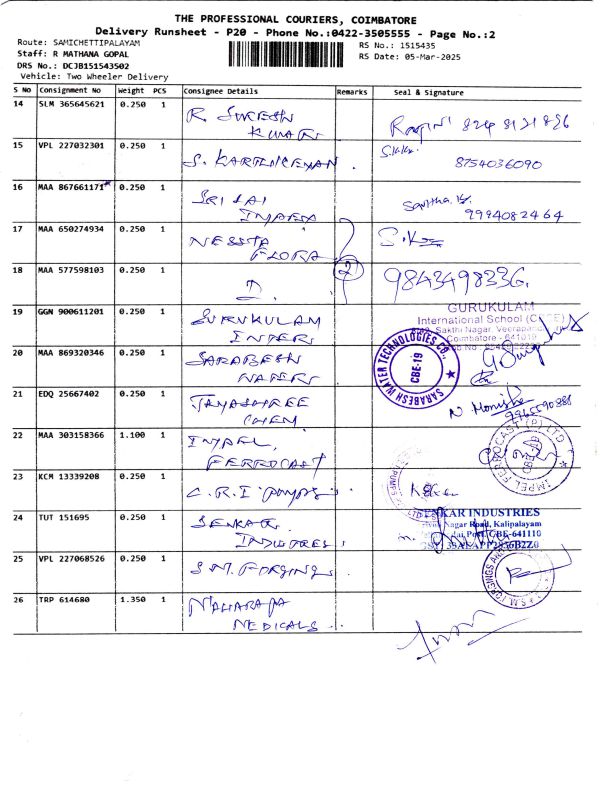 THE PROFESSIONAL COURIERS, COIMBATORE
Delivery Runsheet - P20 - Phone No.:0422-3505555 - Page No.:2
Route: SAMICHETTIPALAYAM
RS No.: 1515435
Staff: R MATHANA GOPAL
RS Date: 05-Mar-2025
DRS No.: DCJB151543502
Vehicle: Two Wheeler Delivery
S No Consignment No Weight PCS Consignee Details Remarks Seal & Signature
14 SLM 365645621 0.250 1 R. SURESH
KUMAR
15 VPL 227032301 0.250 1 S. KARTHIKEYAN
8754036090
16 MAA 867661171 0.250 1 SRI SAI
IMPEX
Savitha
9994082464
17 MAA 650274934 0.250 1 NESSTA
FLORA
18 MAA 577598103 0.250 1 D. 2 9843498336.
19 GGN 900611201 0.250 1 GURUKULAM
INTER
GURUKULAM
International School (CBSE)
Sakthi Nagar, Veerapandi
Coimbatore - 641019
20 MAA 869320346 0.250 1 SARABESH
WATER
SARABESH WATER TECHNOLOGIES CO.,
CBE-19
21 EDQ 25667402 0.250 1 JAYASHREE
CHEM
N. Monisha
22 MAA 303158366 1.100 1 IMPEL
FERROCAST
IMPEL FERROCAST (P) LTD
23 KCM 13339208 0.250 1 C.R.I PUMPS
24 TUT 151695 0.250 1 SENKAR
INDUSTRIES
SENKAR INDUSTRIES
Nagar Road, Kalipalayam
Post, CBE-641110
25 VPL 227068526 0.250 1 S.M. FORGING
S.M. FORGINGS
26 TRP 614680 1.350 1 MAHARAJA
MEDICALS